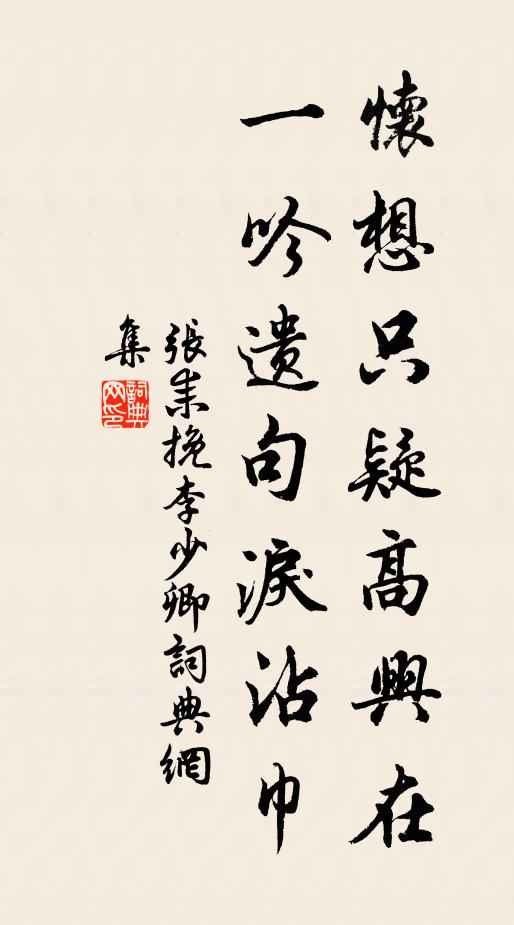 懷想只疑高興在
一吟遺句淚沾巾
張耒挽李少卿詞典網
集
詞典網印